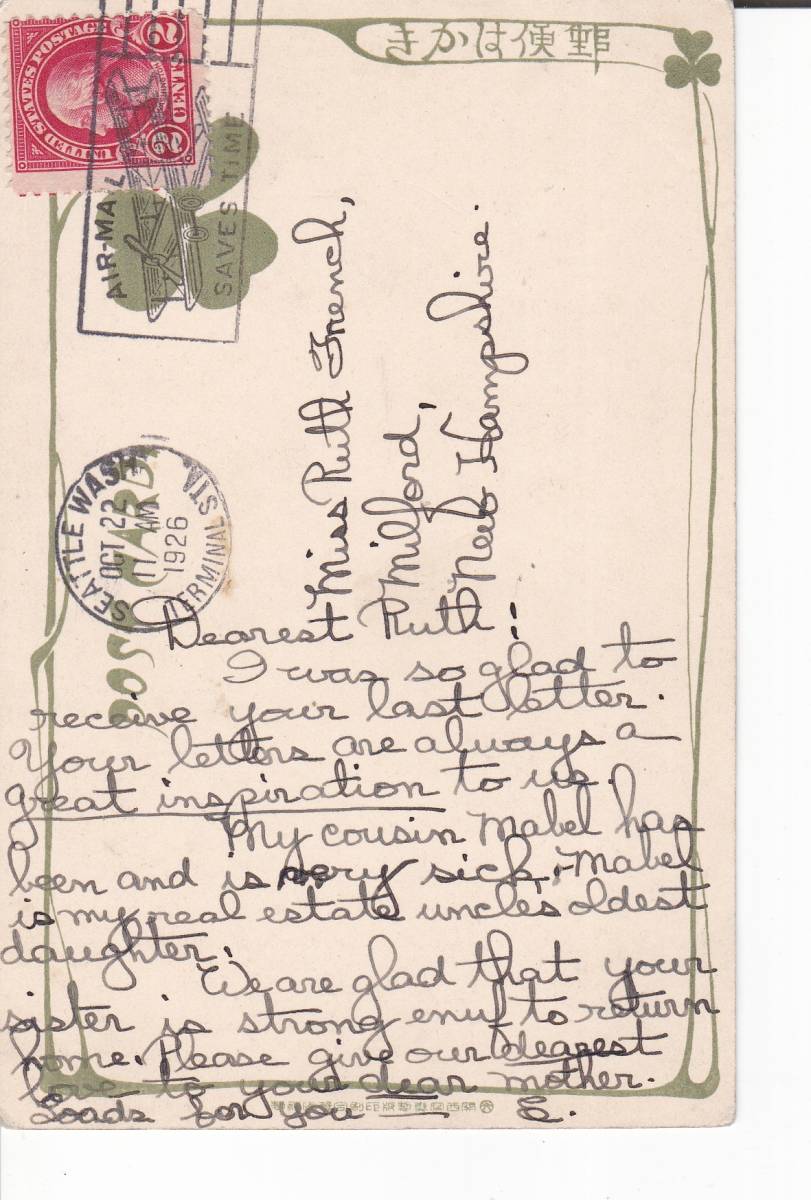 郵便はかき
UNITED STATES POSTAGE
2 CENTS 2
AIR-MAIL
SAVES TIME
SEATTLE WASH.
OCT 22
11 AM
1926
TERMINAL STA.
POST CARD
Miss Ruth French,
Milford,
New Hampshire.
Dearest Ruth:
I was so glad to
receive your last letter.
Your letters are always a
great inspiration to us.
My cousin Mabel has
been and is very sick. Mabel
is my real estate uncle's oldest
daughter.
We are glad that your
sister is strong enuf to return
home. Please give our dearest
love to your dear mother.
Loads for you — E.